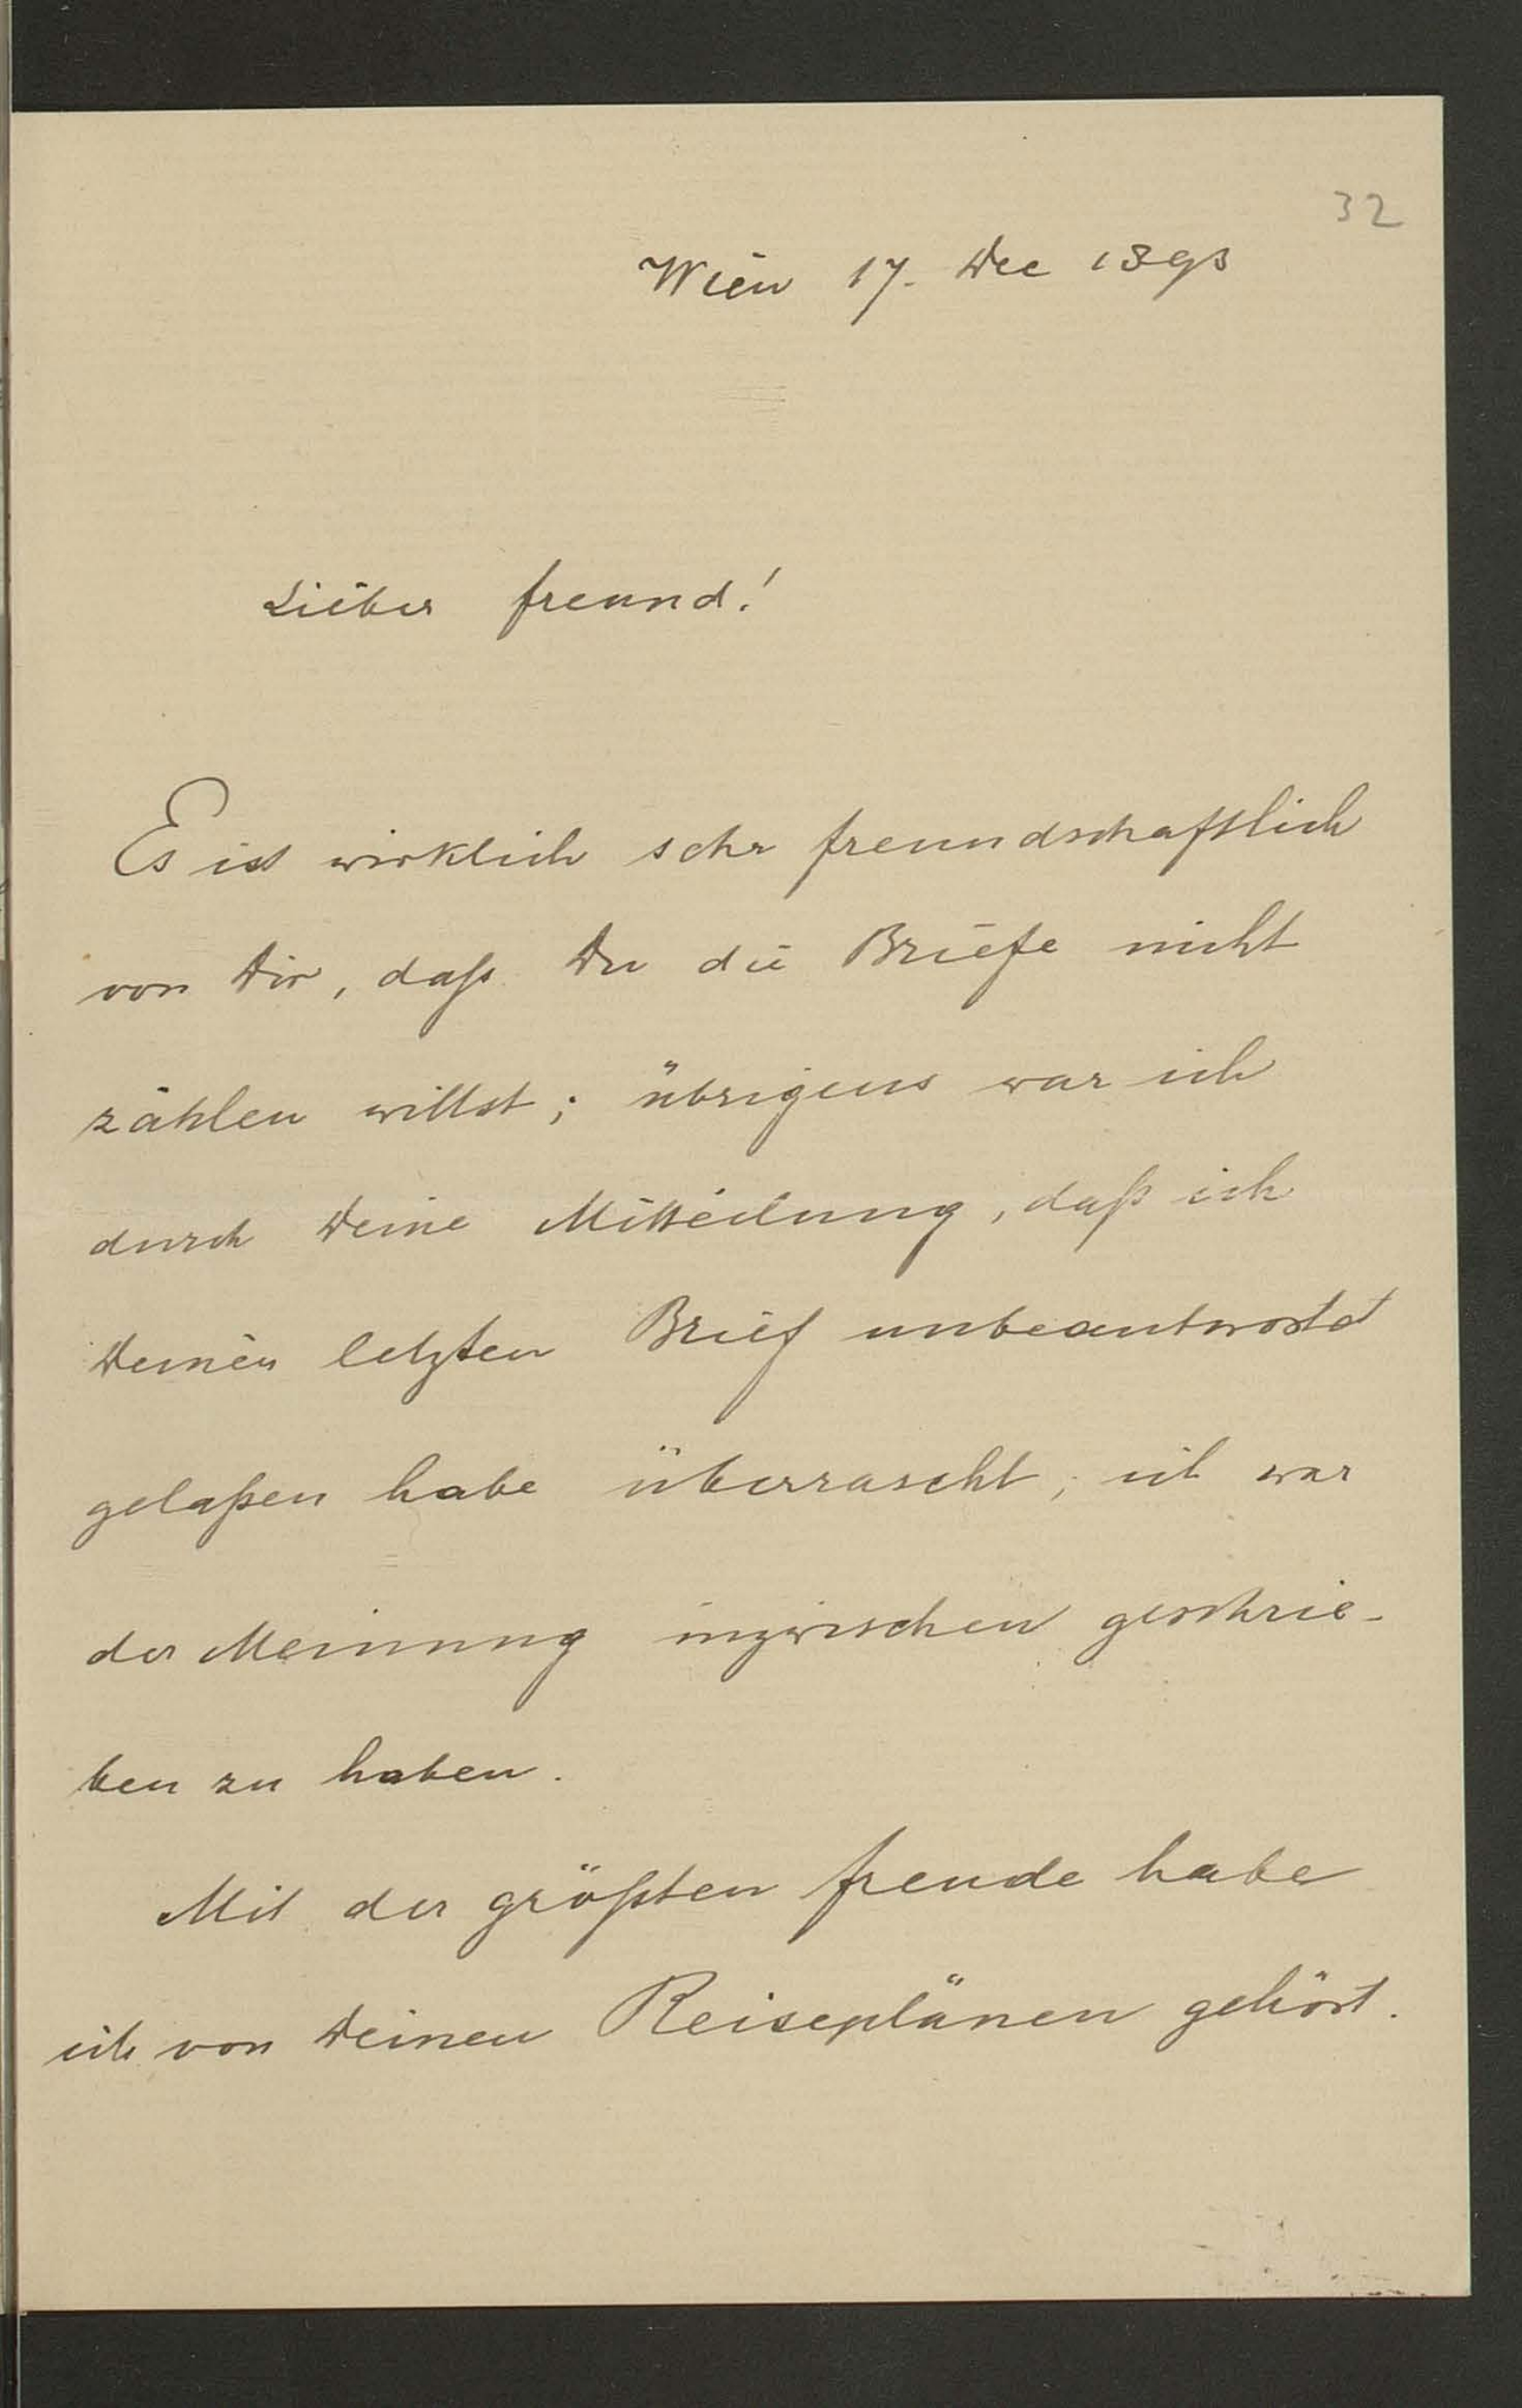 32
Wien 17. Dec 1893
Lieber Freund!
Es ist wirklich sehr freundschaftlich
von Dir, daß Du die Briefe nicht
zählen willst; übrigens war ich
durch Deine Mitteilung, daß ich
Deinen letzten Brief unbeantwortet
gelaßen habe überrascht; ich war
der Meinung inzwischen geschrie-
ben zu haben.
Mit der größten Freude habe
ich von Deinen Reiseplänen gehört.